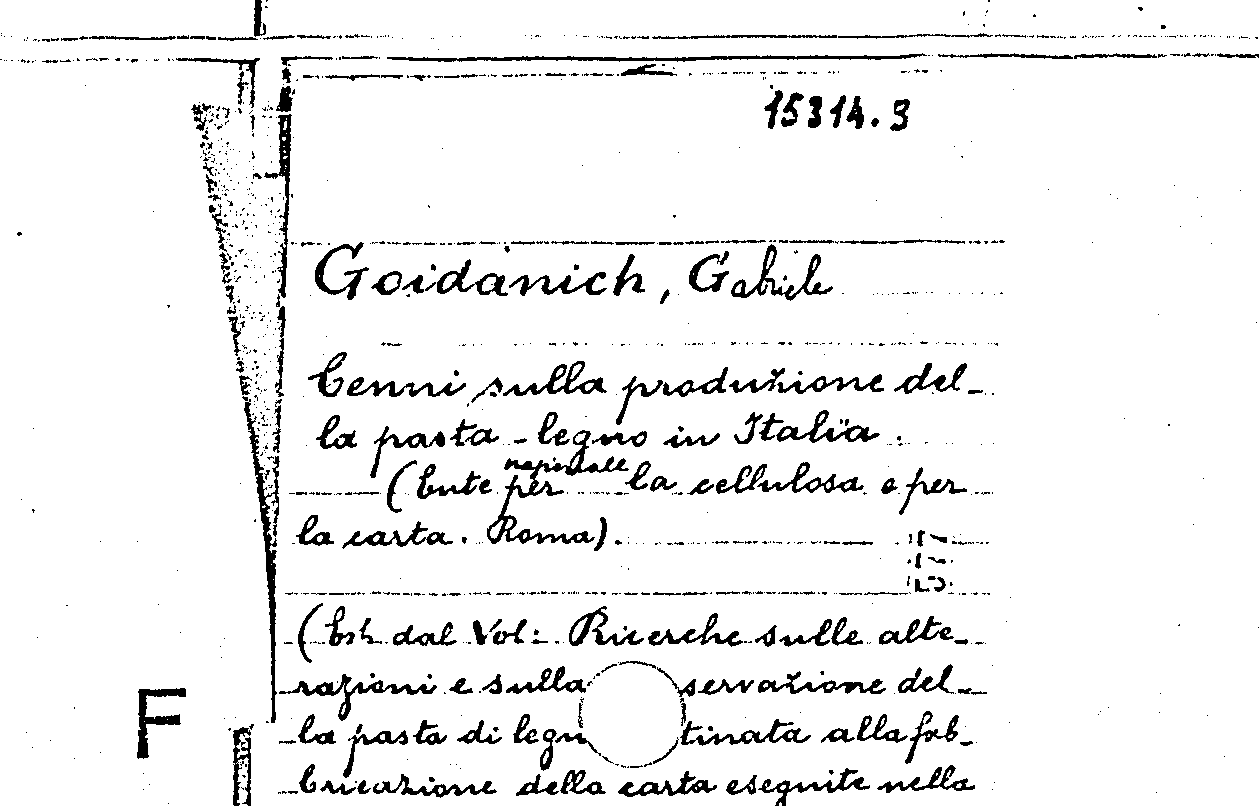 15314.9
Goidánich, Gabriele
Cenni sulla produzione del-
la pasta-legno in Italia.
nazionale
(Ente per la cellulosa e per
la carta. Roma).
577
(Estr. dal Vol: Ricerche sulle alte-
razioni e sulla servazione del-
la pasta di legn tinata alla fab-
F
bricazione della carta eseguite nella